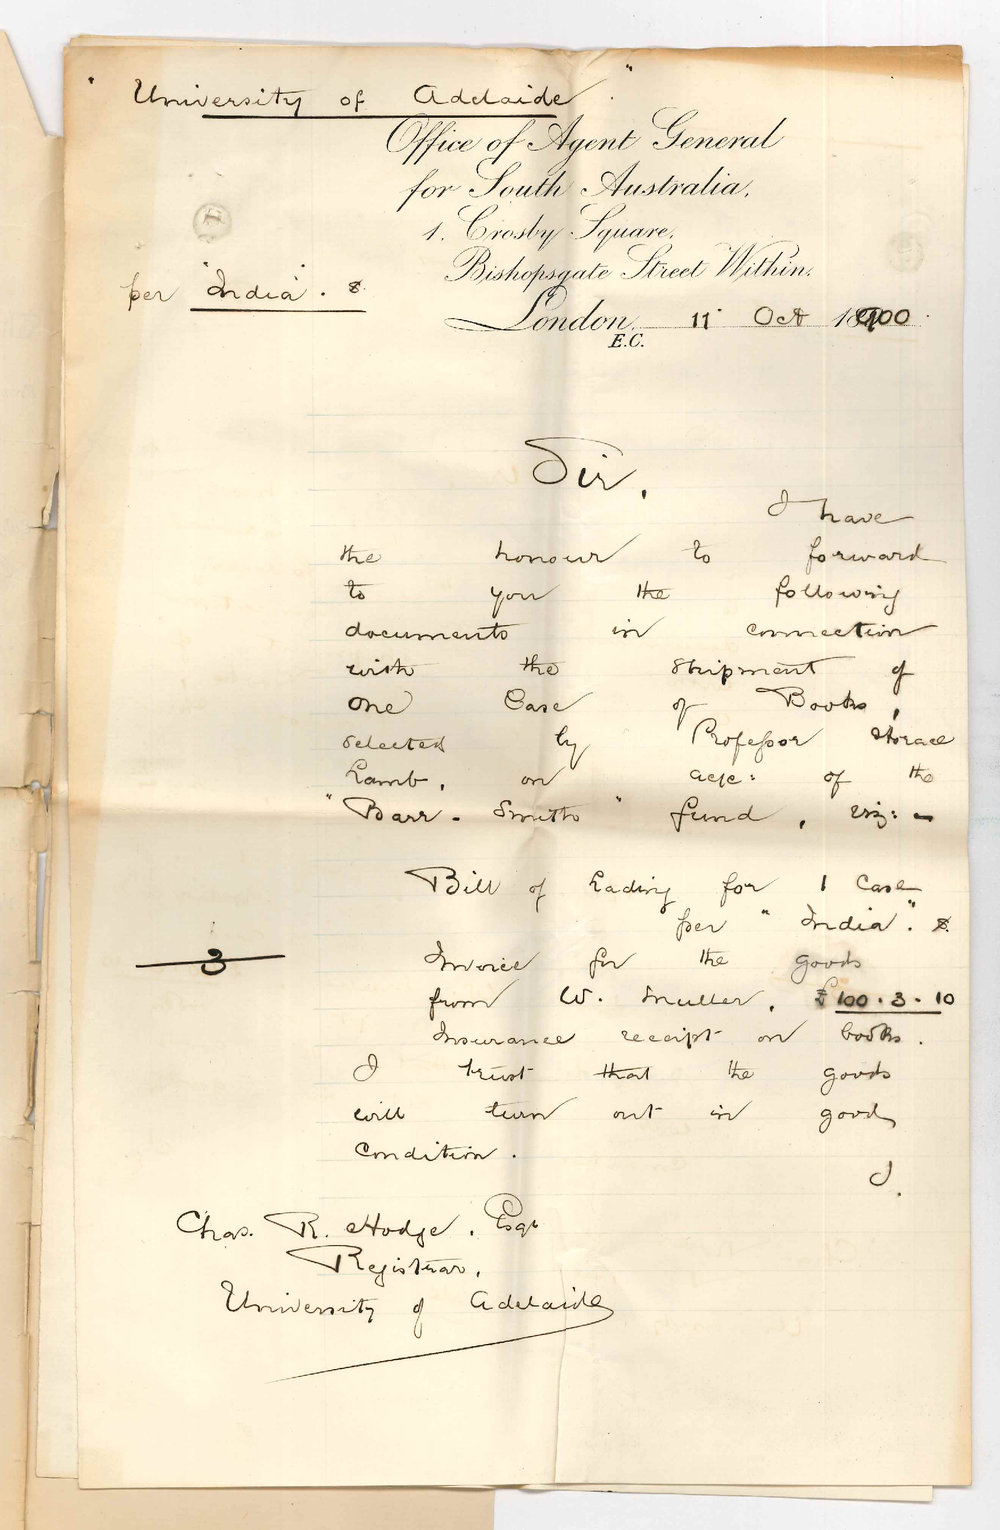 "University of Adelaide"
Office of Agent General
for South Australia,
1. Crosby Square,
Bishopsgate Street Within.
per "India". S.
London, 11 Oct 1900
E.C.
Sir,
I have
the honour to forward
to you the following
documents in connection
with the shipment of
One Case of Books,
selected by Professor Horace
Lamb, on a/c: of the
"Barr-Smith" fund, viz:-
Bill of Lading for 1 Case
per "India". S.
3
Invoice for the goods
from W. Muller, £100.3.10
Insurance receipt on books.
I trust that the goods
will turn out in good
condition.
I.
Chas. R. Hodge, Esqr
Registrar,
University of Adelaide